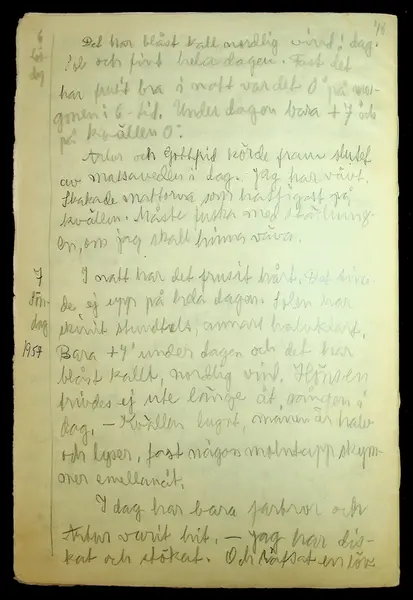 48
6
lör-
dag
Det har blåst kall nordlig vind i dag.
Sol och fint hela dagen. Fast det
har frusit bra i natt var det 0° på mor-
gonen i 6-tid. Under dagen bara +7° och
på kvällen 0°.
Artur och Gottfrid körde fram slutet
av matsaveden i dag. Jag har vävt.
Skakade mattorna som hastigast på
kvällen. Måste med
en, om jag skall hinna väva.
7
Sön-
dag
1957
I natt har det frusit hårt. Det
de ej upp på hela dagen. Solen har
skinit stundtals annars halvklart.
Bara +4° under dagen och det har
blåst kallt, nordlig vind. Hönsen
trivdes ej ute länge åt gången i
dag. — Kvällen lugnt, månen är halv
och lyser, fast någon molntapp skym-
mer emellanåt.
I dag har bara farbror och
Artur varit hit. — Jag har dis-
kat och stökat. Och räfsat en löv